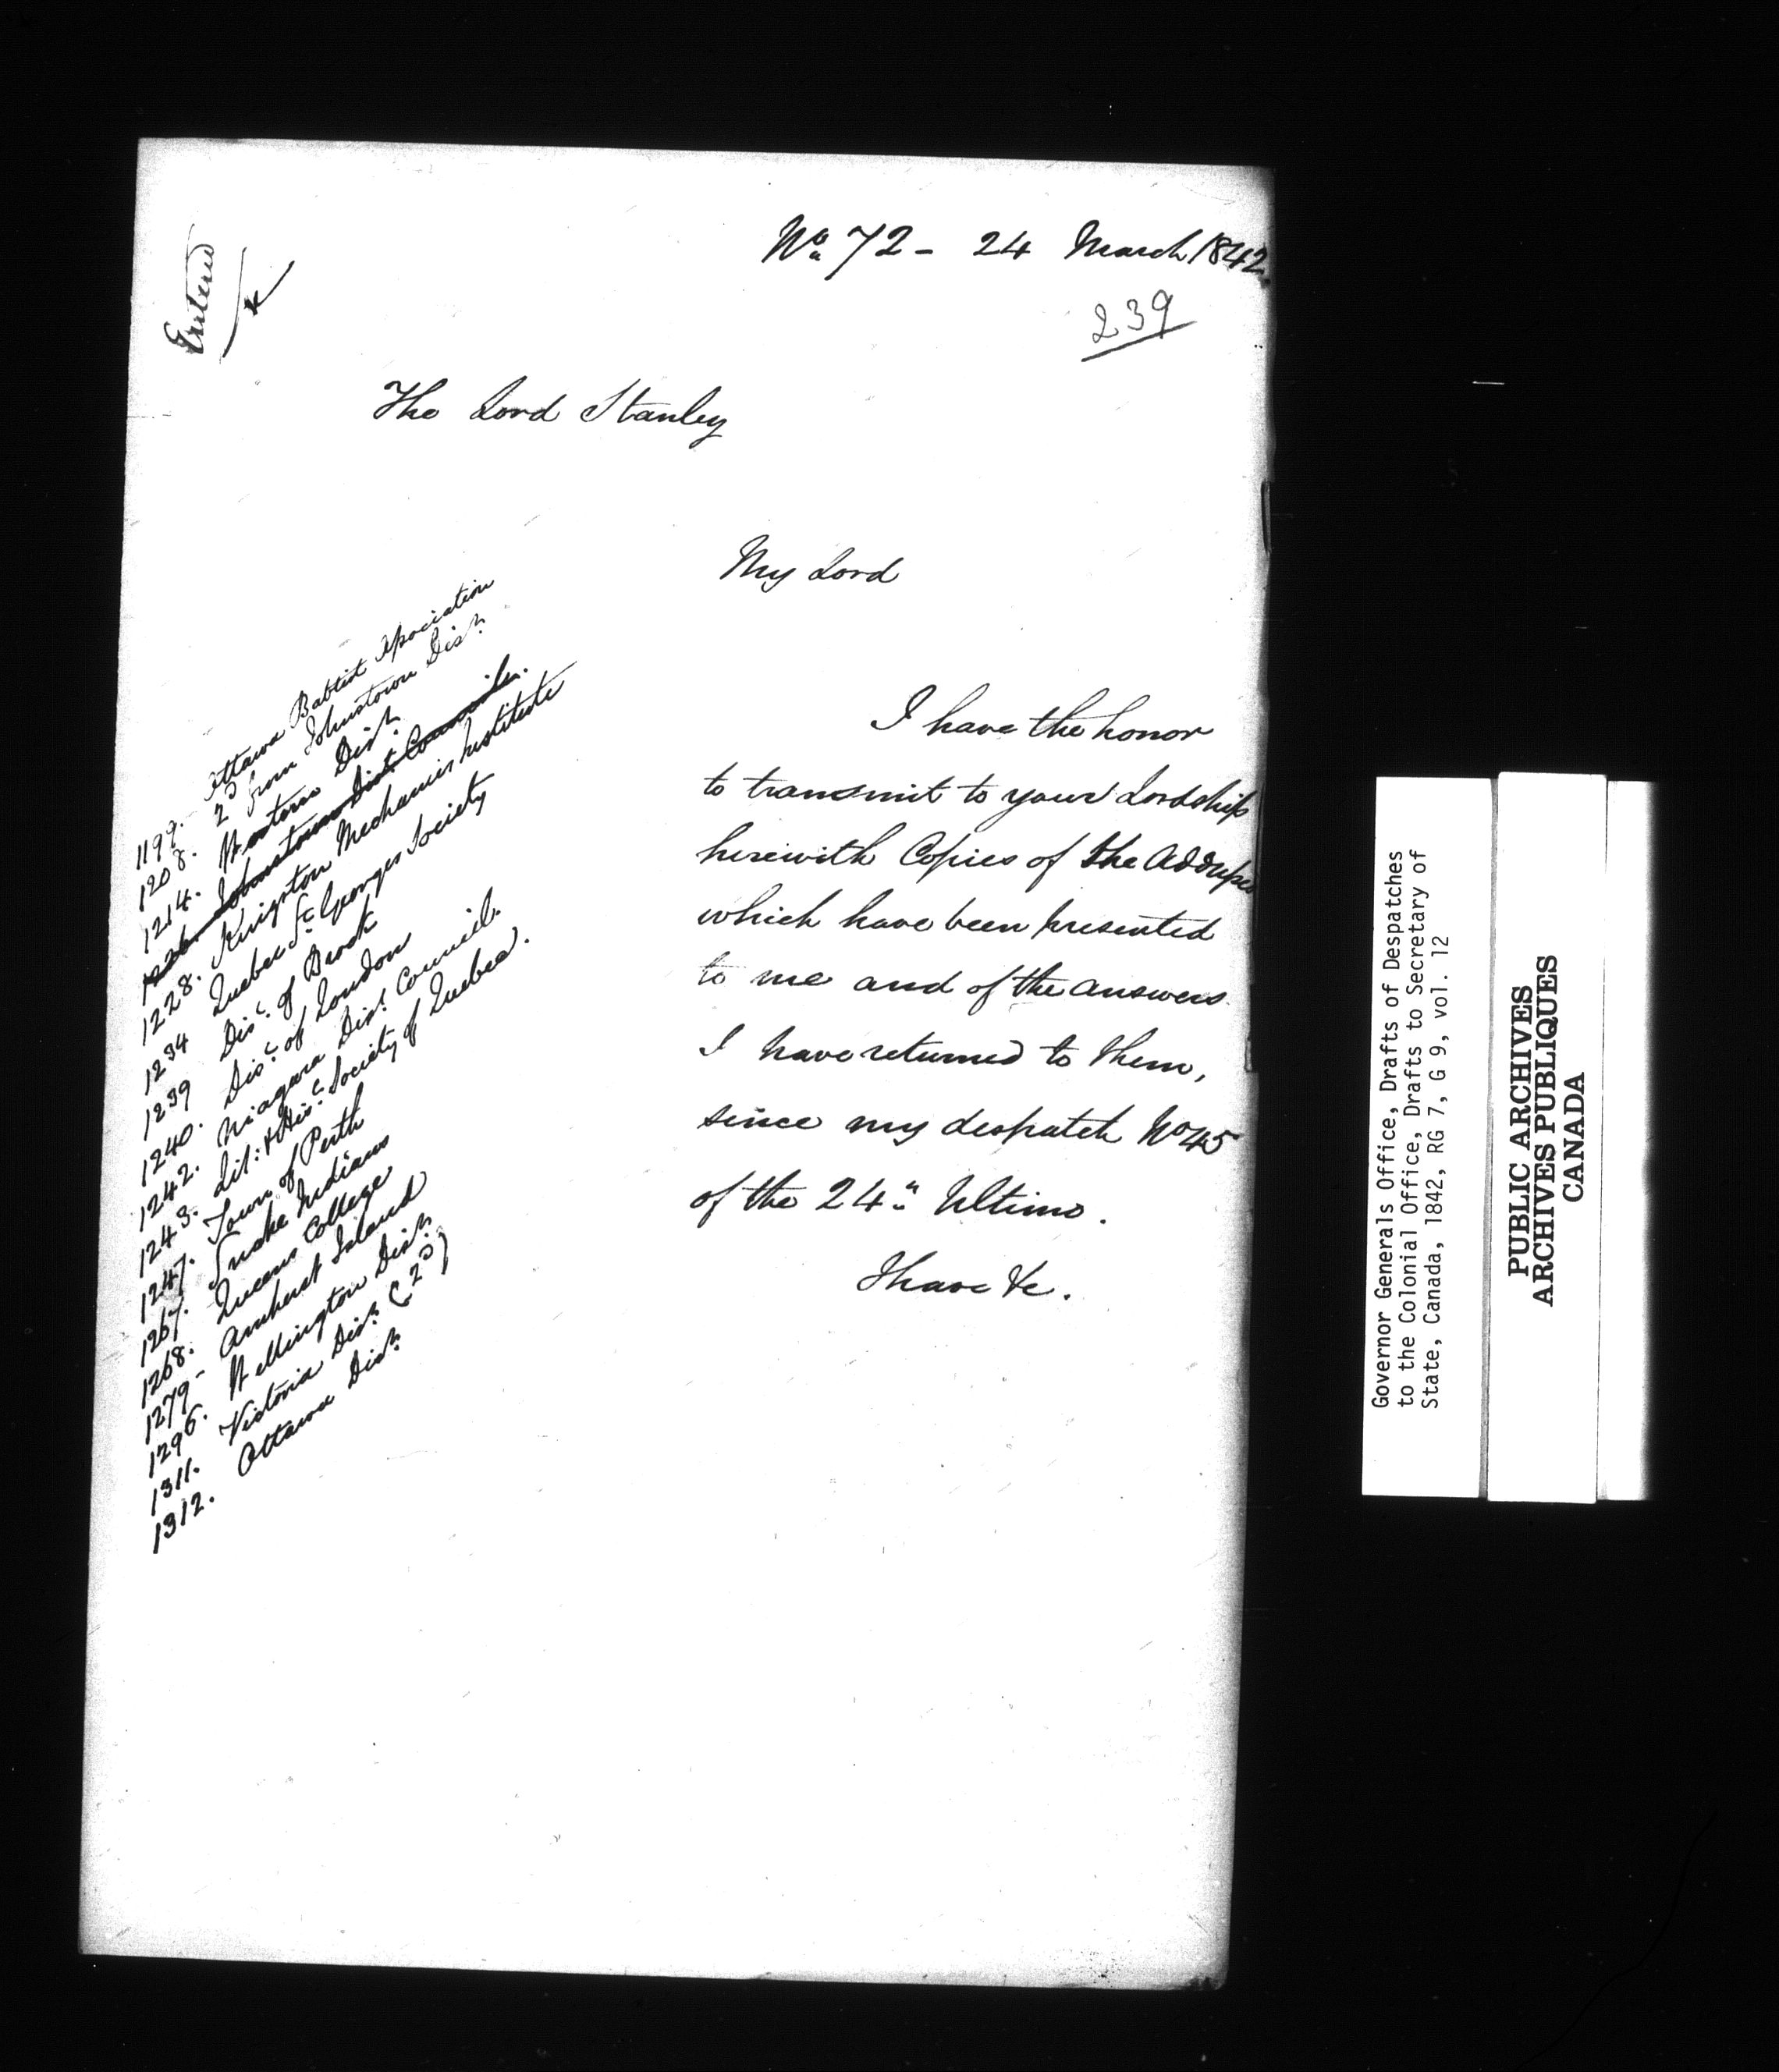 No. 72 - 24 March 1842
239
Entered
The Lord Stanley
My Lord
I have the honor
to transmit to your Lordship
herewith Copies of the Addresses
which have been presented
to me and of the answers
I have returned to them,
since my despatch No 45
of the 24th Ultimo.
I have &c.
1199. Ottawa Babtist Association
1208. 2d from Johnstown Dist.
1214. Western Dist.
1226. Johnstown Dist Councillr.
1228. Kingston Mechanics Institute
1234 Quebec St. Georges Society
1239 Dist. of Brock
1240. Dist. of London
1242. Niagara Dist. Council.
1243. Lit: & His. Society of Quebec.
1247. Town of Perth
1267. Snake Indians
1268. Queens College
1279- Amherst Island
1296. Wellington Dist.
1311. Victoria Dist. (2d)
1312. Ottawa Dist.
Governor Generals Office, Drafts of Despatches
to the Colonial Office, Drafts to Secretary of
State, Canada, 1842, RG 7, G 9, vol. 12
PUBLIC ARCHIVES
ARCHIVES PUBLIQUES
CANADA